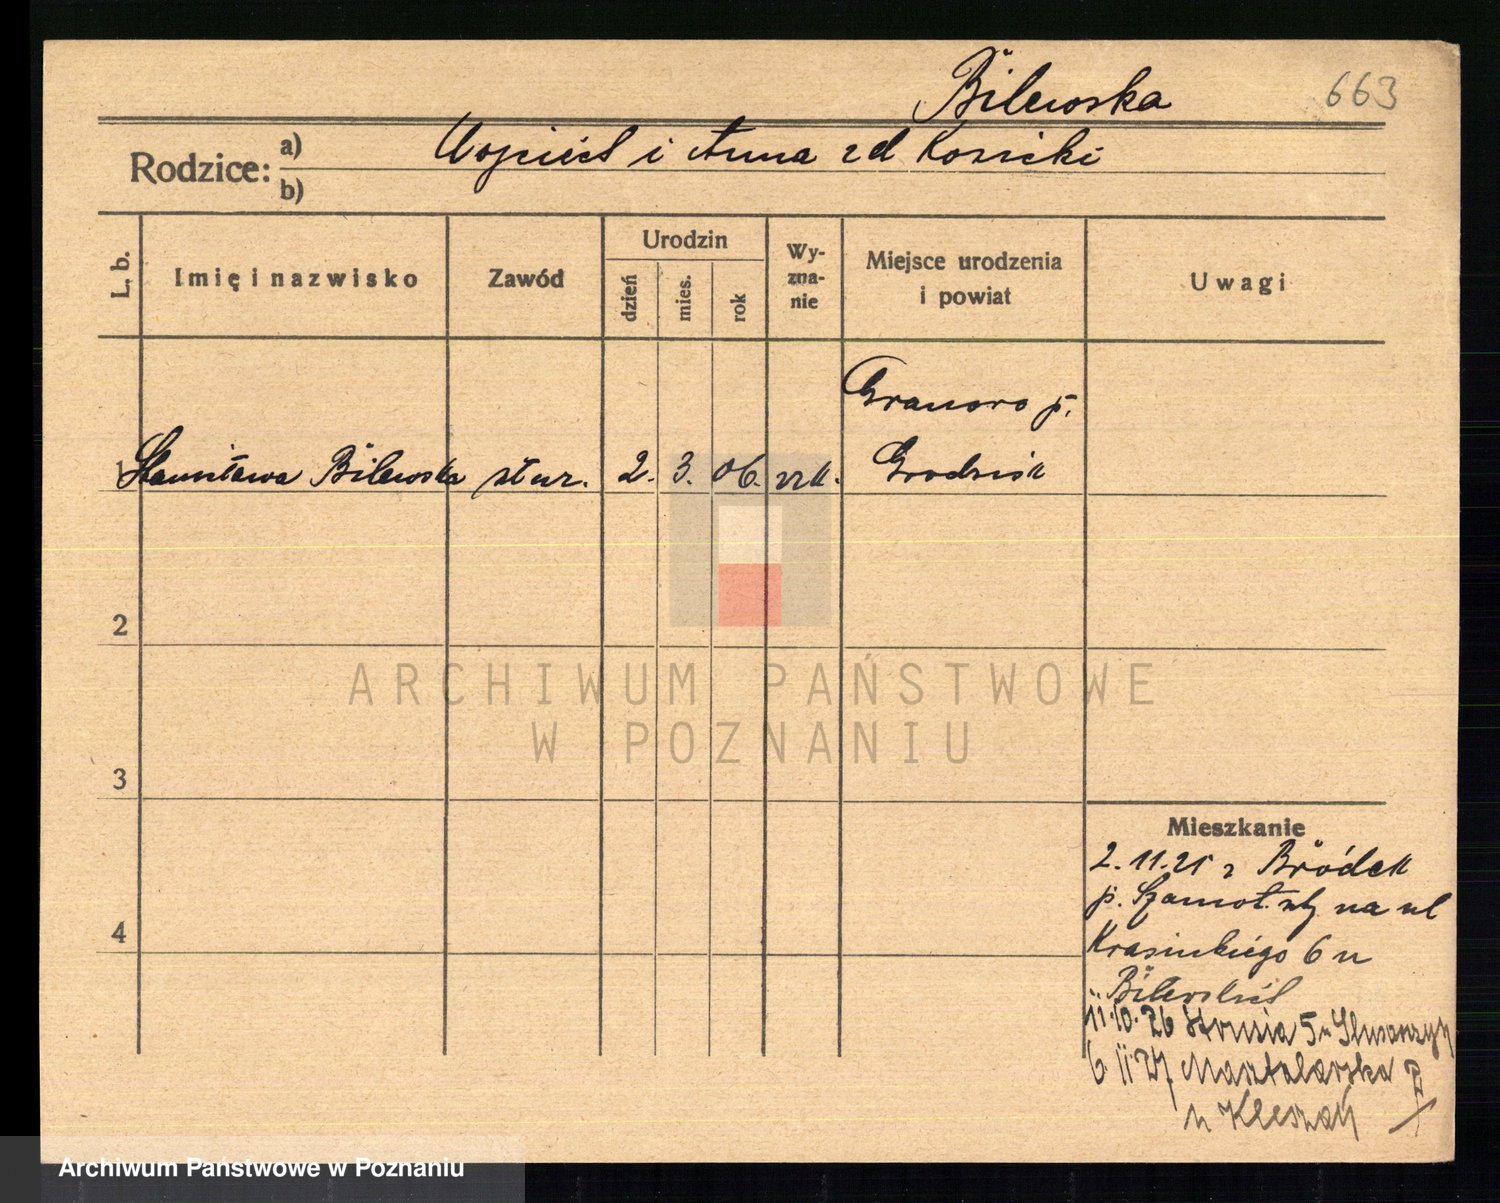 Bilewska 663
Rodzice: a) Wojciech i Anna zd Kosicki
b)
L. b.
Imię i nazwisko
Zawód
Urodzin
dzień
mies.
rok
Wy-
zna-
nie
Miejsce urodzenia
i powiat
Uwagi
Granowo p.
1 Stanisława Bilewska służ. 2. 3. 06. rzk. Grodzisk
2
3
4
ARCHIWUM PAŃSTWOWE
W POZNANIU
Mieszkanie
2.11.25 z Bródek
p. Szamot. na ul
Krasińskiego 6 u
Bilewskich
11.10.26 Strusia 5 u
6 11 27. Masztalarska
u
Archiwum Państwowe w Poznaniu